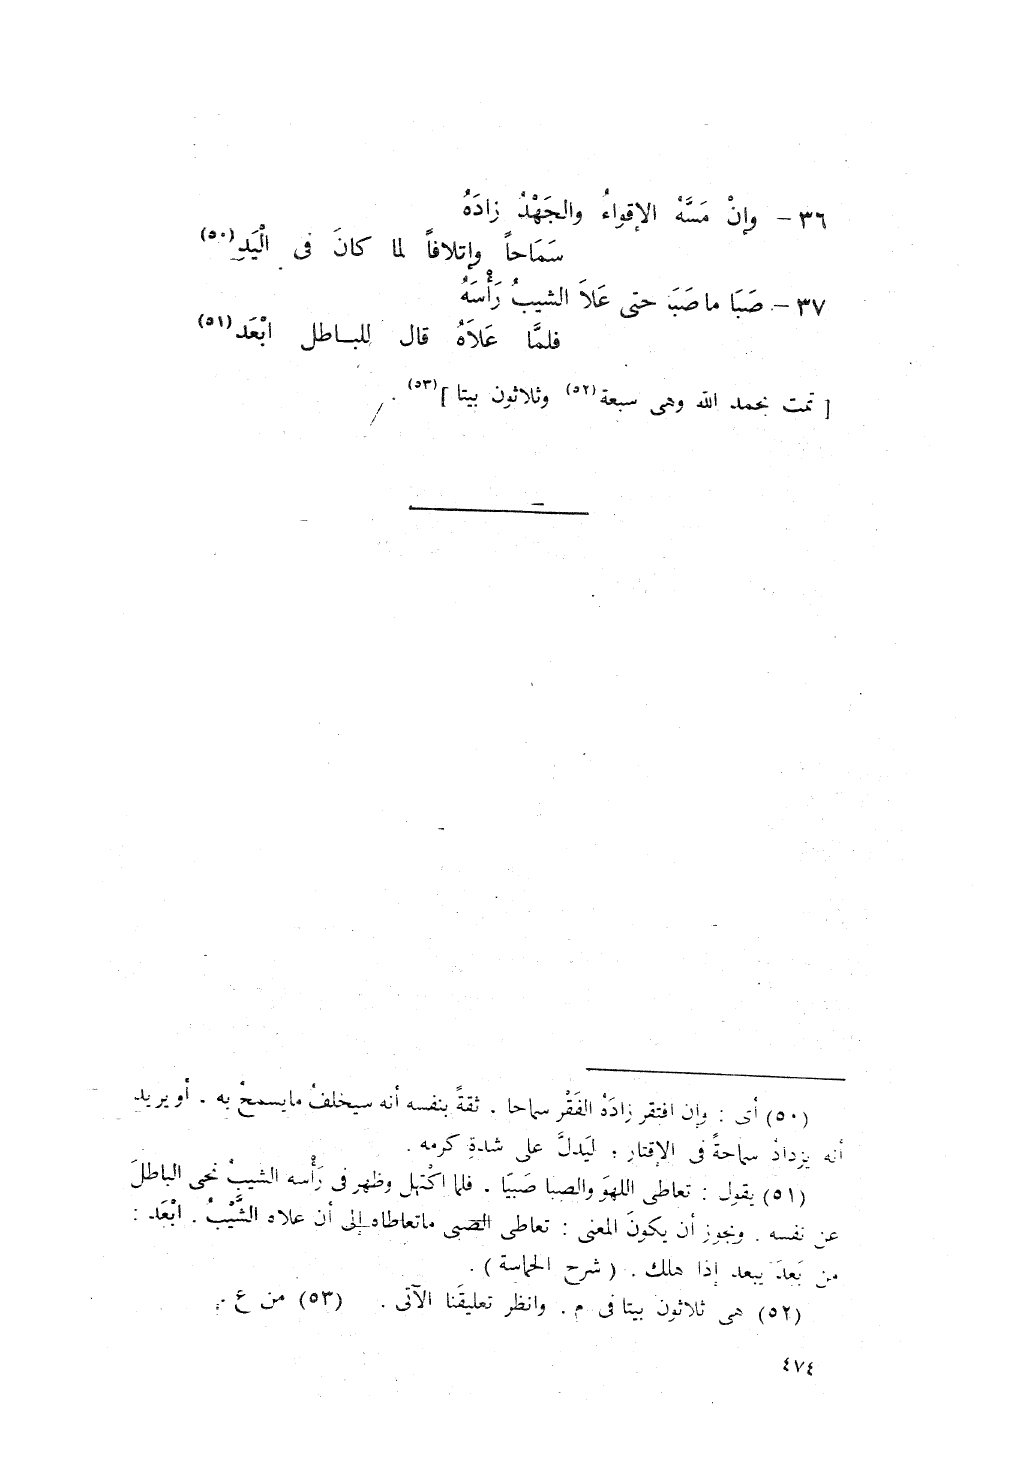 ٣٦ – وإنْ مَسَّهُ الإقواءُ والجَهْدُ زادَهُ
سَمَاحاً وإتلافاً لما كانَ فى الْيَدِ (٥٠)
٣٧ – صَبَا ما صَبَا حتى عَلاَ الشيبُ رَأْسَهُ
فلمَّا عَلاَهُ قال للبـاطل ابْعَدِ (٥١)
[ تمت بحمد الله وهى سبعة (٥٢) وثلاثون بيتا ] (٥٣) .
(٥٠) أى : وإن افتقر زادَهُ الفَقْر سماحا . ثقةً بنفسه أنه سيخلفُ مايسمحُ به . أو يريد
أنه يزدادُ سماحةً فى الإقتار ؛ ليَدلَّ على شدةِ كرمه .
(٥١) يقول : تعاطى اللهوَ والصبا صَبيًا . فلما اكْتهل وظهر فى رَأْسه الشيبُ نحى الباطلَ
عن نفسه . ويجوز أن يكونَ المعنى : تعاطى الصبى ماتعاطاه إلى أن علاه الشَّيْبُ . ابْعَد :
من بَعدَ يبعد إذا هلك . ( شرح الحماسة ) .
(٥٢) هى ثلاثون بيتا فى م . وانظر تعليقَنا الآتى . (٥٣) من ع .
٤٧٤